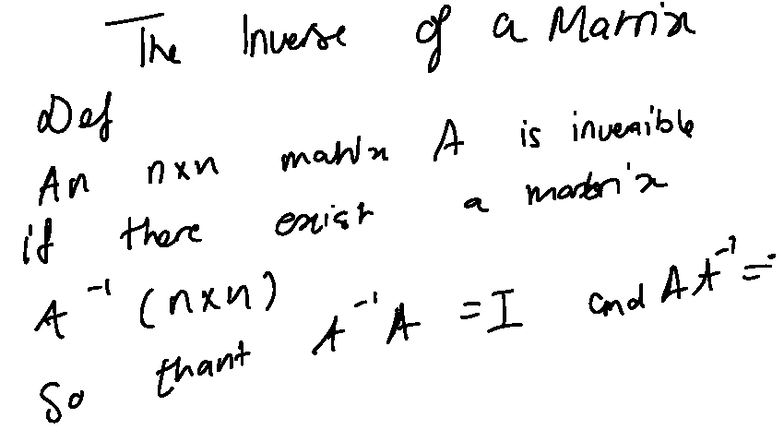 The Inverse of a Matrix
Def
An n×n matrix A is invertible
if there exist a matrix
A⁻¹ (n×n)
So thant A⁻¹A = I and AA⁻¹ =